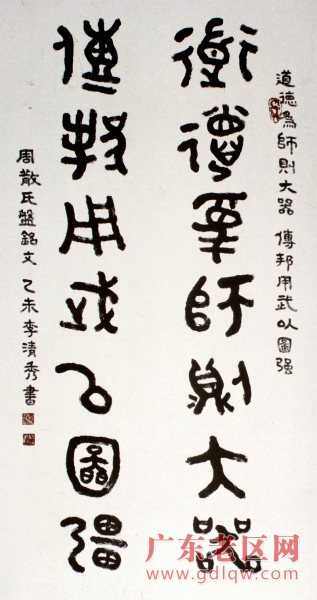 道德為師則大器 傳邦用武以圖强
道德為師則大器
傳邦用武以圖彊
周散氏盤銘文 乙未李清秀書
广东老区网
www.gdlqw.com